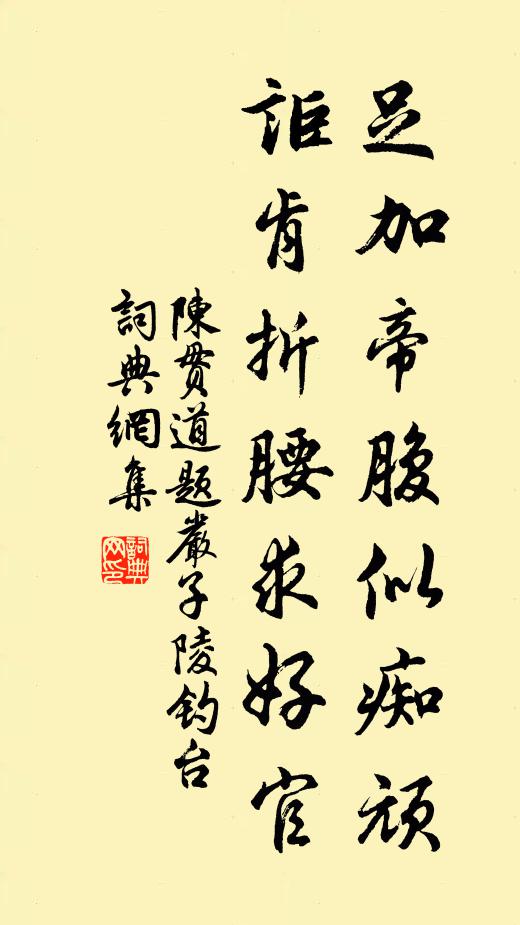 足加帝腹似痴頑
詎肯折腰求好官
陳貫道題嚴子陵釣台
詞典網集
詞典
网印